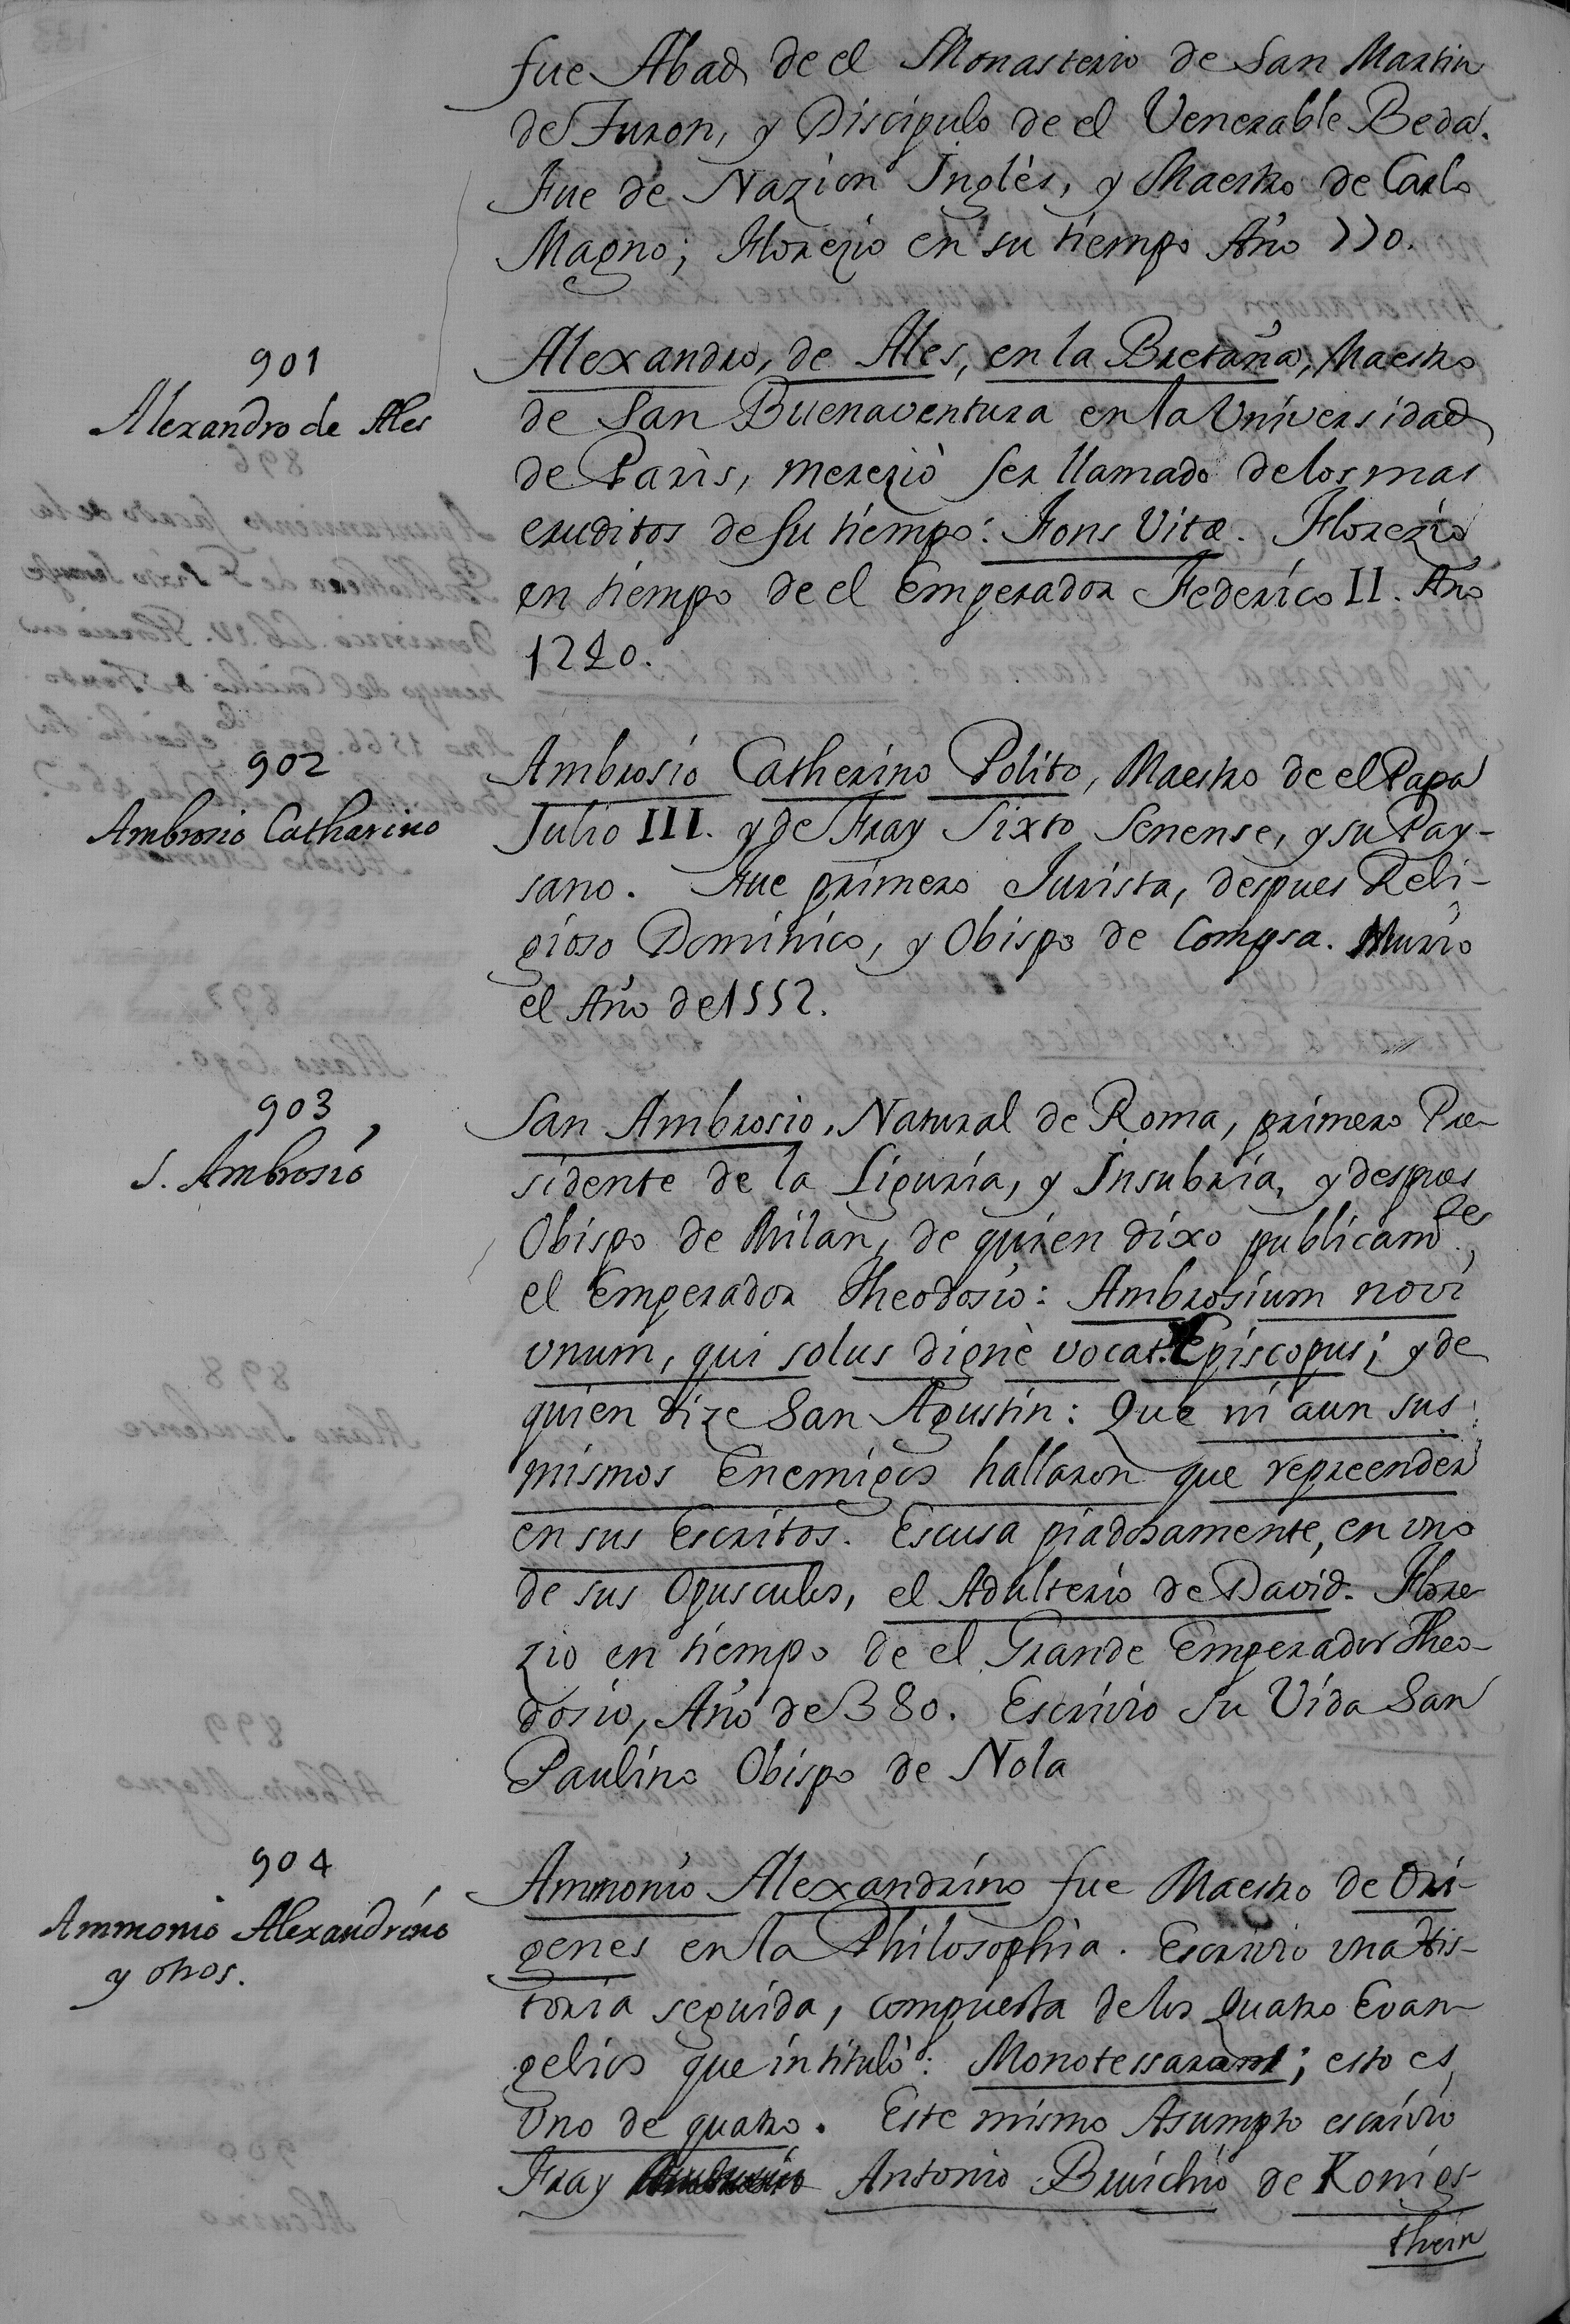 fue Abad de el Monasterio de San Martin
de Turon, y Discipulo de el Venerable Beda.
Fue de Nazion Inglès, y Maestro de Carlo
Magno; Florezio en su tiempo Año 770.
901
Alexandro de Ales
Alexandro, de Ales, en la Bretaña, Maestro
de San Buenaventura en la Universidad
de Paris, mereziò ser llamado de los mas
eruditos de su tiempo: Fons Vitæ. Florezio
en tiempo de el Emperador Federico II. Año
1240.
902
Ambrosio Catharino
Ambrosio Catherino Polito, Maestro de el Papa
Julio III. y de Fray Sixto Senense, y su Pay-
sano. Fue primero Jurista, despues Reli-
gioso Dominico, y Obispo de Compsa. Murio
el Año de 1552.
903
S. Ambrosio
San Ambrosio, Natural de Roma, primero Pre-
sidente de la Liguria, y Insubria, y despues
Obispo de Milan, de quien dixo publicam.te,
el Emperador Theodosio: Ambrosium novi
unum, qui solus dignè vocat. Episcopus; y de
quien dize San Agustin: Que ni aun sus
mismos Enemigos hallaron que repreender
en sus Escritos. Escusa piadosamente, en uno
de sus Opusculos, el Adulterio de David. Flore-
zio en tiempo de el Grande Emperador Theo-
dosio, Año de 380. Escrivio su Vida San
Paulino Obispo de Nola
904
Ammonio Alexandrino
y otros.
Ammonio Alexandrino fue Maestro de Ori-
genes en la Philosophia. Escrivio una His-
toria seguida, compuesta de los Quatro Evan-
gelios que intitulò: Monotessaram; esto es,
Uno de quatro. Este mismo Asumpto escrivio
Fray Antonio Bruichio de Konigs-
thein